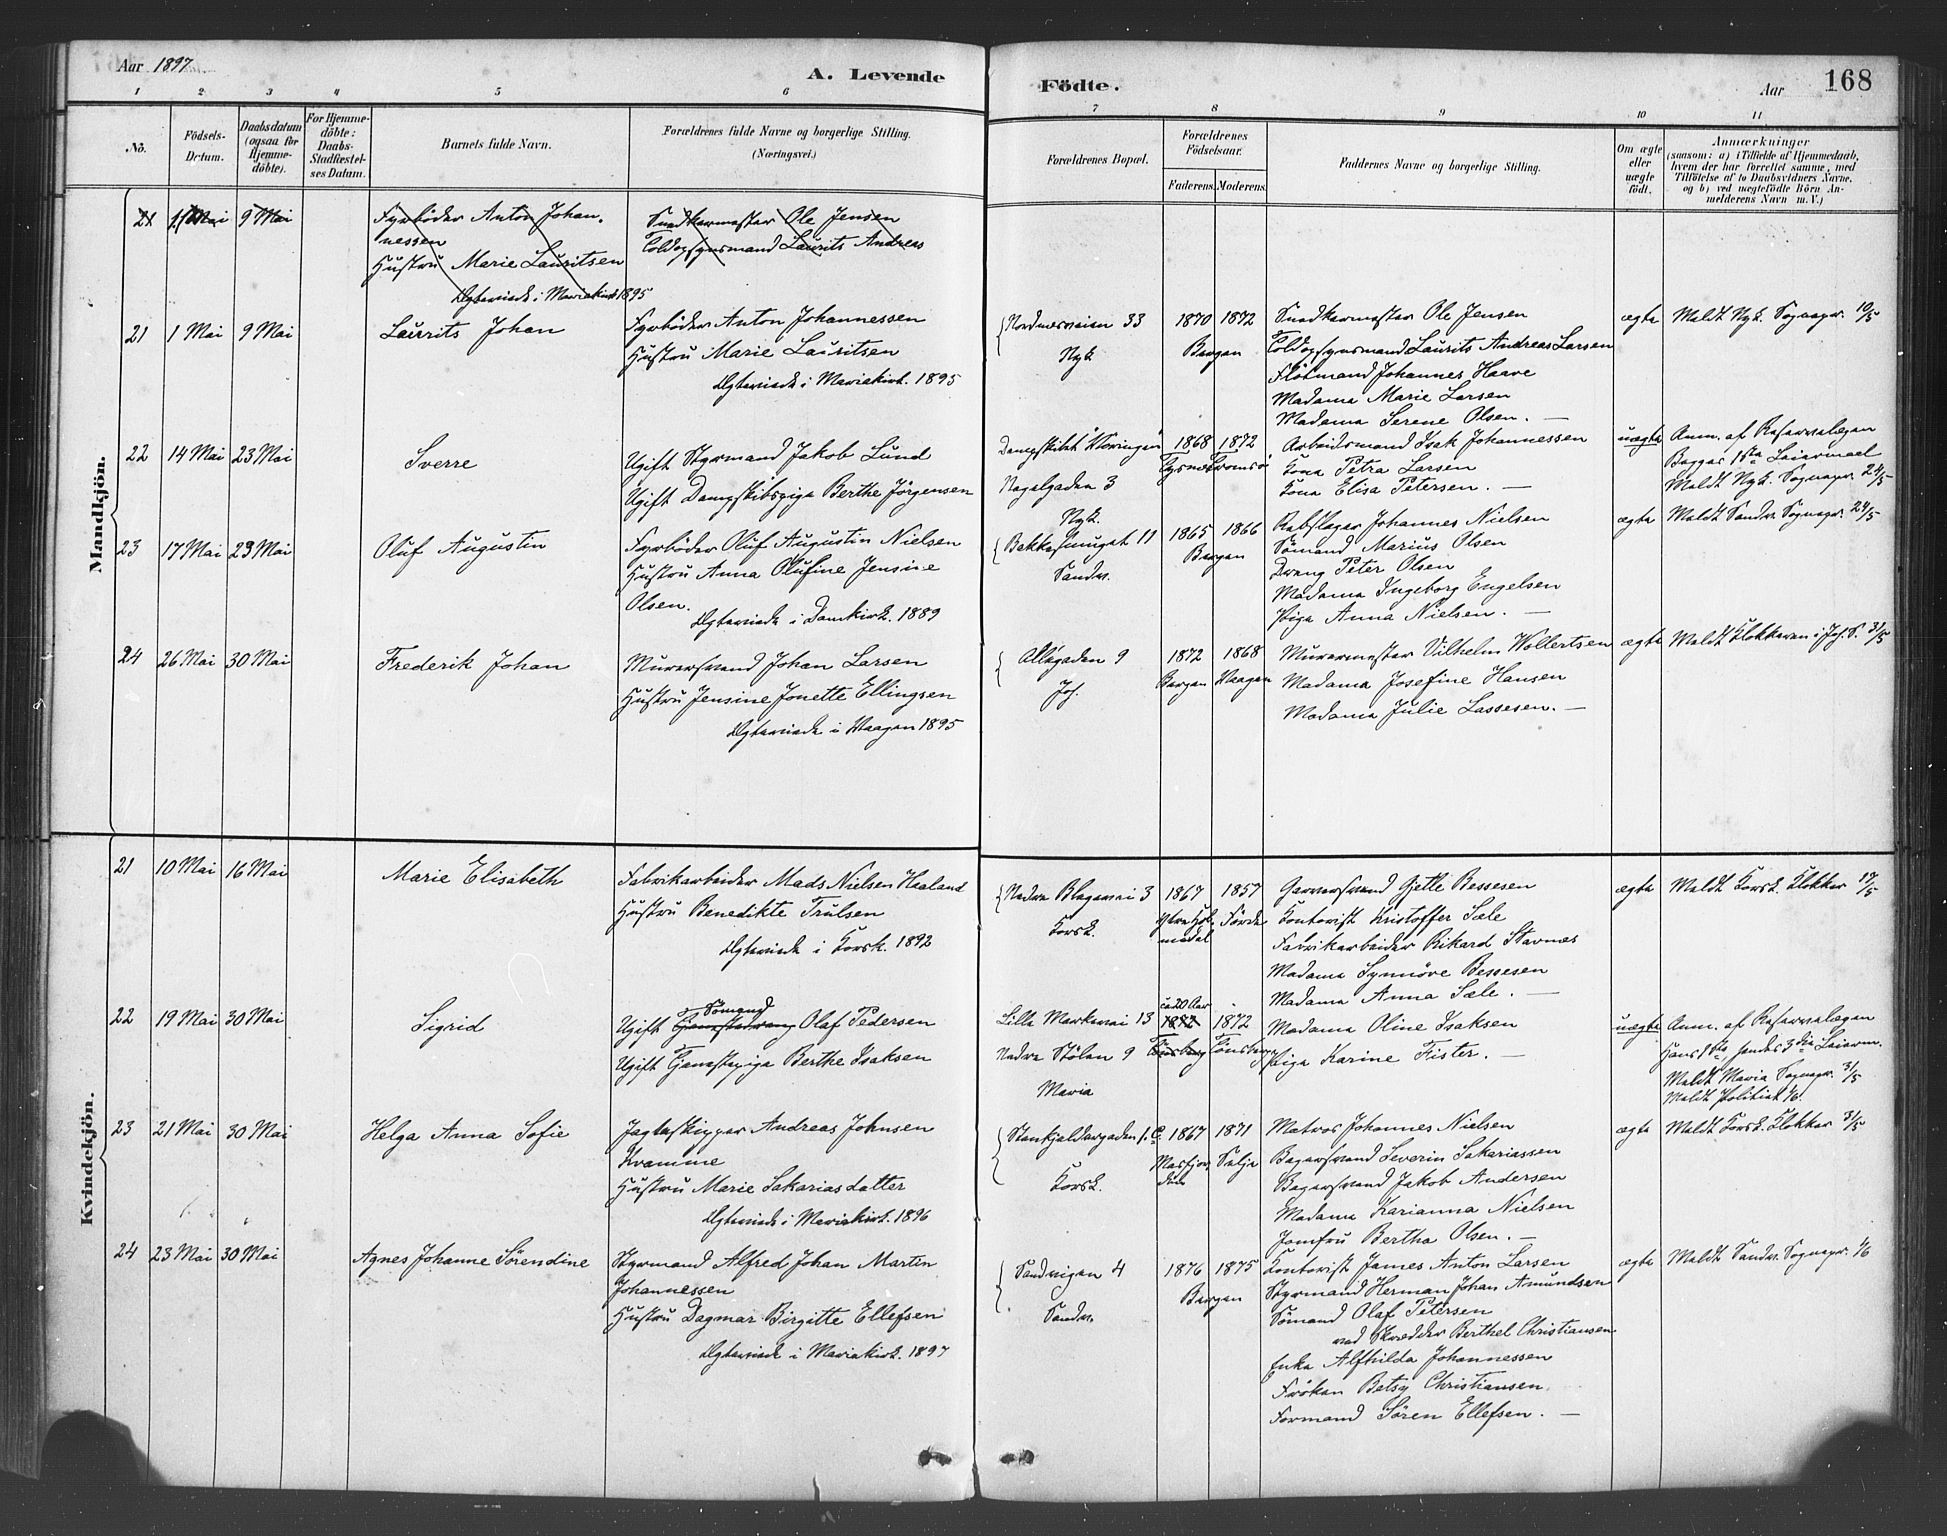 Aar 1897.
A. Levende
Födte.
Aar 168
1 2 3 4 5 6 7 8 9 10 11
Nö.
Födsels-Datum.
Daabsdatum (ogsaa for Hjemmedöbte).
For Hjemmedöbte: Daabs-Stadfæstelses Datum.
Barnets fulde Navn.
Forældrenes fulde Navne og borgerlige Stilling. (Næringsvei.)
Forældrenes Bopæl.
Forældrenes Födselsaar.
Faderens. Moderens.
Faddernes Navne og borgerlige Stilling.
Om ægte eller uægte födt.
Anmærkninger
(saasom: a) i Tilfælde af Hjemmedaab, hvem der har forrettet samme, med Tilföielse af to Daabsvidners Navne, og b) ved uægtefödte Börn Anmelderens Navn m. V.)
Mandkjön.
21 1 Mai 9 Mai Fyrböder Anton Johan-
nessen
Hustru Marie Lauritsen
Ægteviede i Mariakirk 1895
Snedkermester Ole Jensen
Toldopsynsmand Laurits Andreas
21 1 Mai 9 Mai Laurits Johan
Fyrböder Anton Johannessen
Hustru Marie Lauritsen
Ægteviede i Mariakirk. 1895
Nordnesveien 33
Nyk.
1870 1872
Bergen
Snedkermester Ole Jensen
Toldopsynsmand Laurits Andreas Larsen
Flötmand Johannes Haave
Madame Marie Larsen
Madame Serene Olsen. —
ægte Meldt Nyk. Sognepr. 10/5
22 14 Mai 23 Mai Sverre
Ugift Styrmand Jakob Lund
Ugift Dampskibspige Berthe Jörgensen
Dampskibet
Nagelgaden 3
Nyk.
1868 1872
Tysnes Tromsö
Arbeidsmand Isak Johannessen
Kone Petra Larsen
Kone Elisa Petersen. —
uægte Anm. af Reservelægen
Begges 1ste Leiermaal
Meldt Nyk. Sognepr. 24/5
23 17 Mai 23 Mai Oluf Augustin
Fyrböder Oluf Augustin Nielsen
Hustru Anna Olufine Jensine
Olsen.
Ægteviede i Domkirk. 1889
Bekkesmuget 11
Sandv.
1865 1866
Bergen
Rebslager Johannes Nielsen
Sömand Marius Olsen
Dreng Peter Olsen
Madame Ingeborg Engelsen
Pige Anna Nielsen. —
ægte Meldt Sandv. Sognepr. 24/5
24 26 Mai 30 Mai Frederik Johan
Murersvend Johan Larsen
Hustru Jensine Jonette Ellingsen
Ægteviede i Vaagen 1895
Allégaden 9
Joh.
1872 1868
Bergen Vaagen
Murermester Vilhelm Wollertsen
Madame Josefine Hansen
Madame Julie Lassesen. —
ægte Meldt Klokkeren i Joh. S. 31/5
Kvindekjön.
21 10 Mai 16 Mai Marie Elisabeth
Fabrikarbeider Mads Nielsen Haaland
Hustru Benedikte Trulsen
Ægteviede i Korsk. 1892
Nedre Blegevei 3
Korsk.
1867 1857
Ytre Holmedal Förde
Garversvend Gjetle Bessesen
Kontorist Kristoffer Sæle
Fabrikarbeider Rikard Stavnæs
Madame Synnöve Bessesen
Madame Anna Sæle. —
ægte Meldt Korsk. Klokker 17/5
22 19 Mai 30 Mai Sigrid
Sömand
Ugift Olaf Pedersen
Ugift Tjenestepige Berthe Isaksen
Lille Markevei 13
Nedre Stölen 9
Maria
ca 20 Aar
1872 1872
Tönsberg Tönsberg
Madame Oline Isaksen
Pige Karine Fister. —
uægte Anm. af Reservelægen
Hans 1ste, hendes 3die Leierm.
Meldt Maria Sognepr. 31/5
Meldt Politiet 1/6.
23 21 Mai 30 Mai Helga Anna Sofie
Jagteskipper Andreas Johnsen
Kvamme
Hustru Marie Sakariasdatter
Ægteviede i Mariakirk. 1896
Stenkjeldergaden 1. C.
Korsk.
1867 1871
Masfjorden Selje
Matros Johannes Nielsen
Bagersvend Severin Sakariassen
Bagersvend Jakob Andersen
Madame Karianna Nielsen
Jomfru Bertha Olsen. —
ægte Meldt Korsk. Klokker 31/5
24 23 Mai 30 Mai Agnes Johanne Sörendine
Styrmand Alfred Johan Martin
Johannessen
Hustru Dagmar Birgitte Ellefsen
Ægteviede i Mariakirk. 1897
Sandvigen 4
Sandv.
1876 1875
Bergen
Kontorist James Anton Larsen
Styrmand Herman Johan Amundsen
Sömand Olaf Petersen
ved Skrædder Berthel Christiansen
Enke Alfhilda Johannessen
Fröken Betsy Christiansen.
Formand Sören Ellefsen. —
ægte Meldt Sandv. Sognepr. 1/6